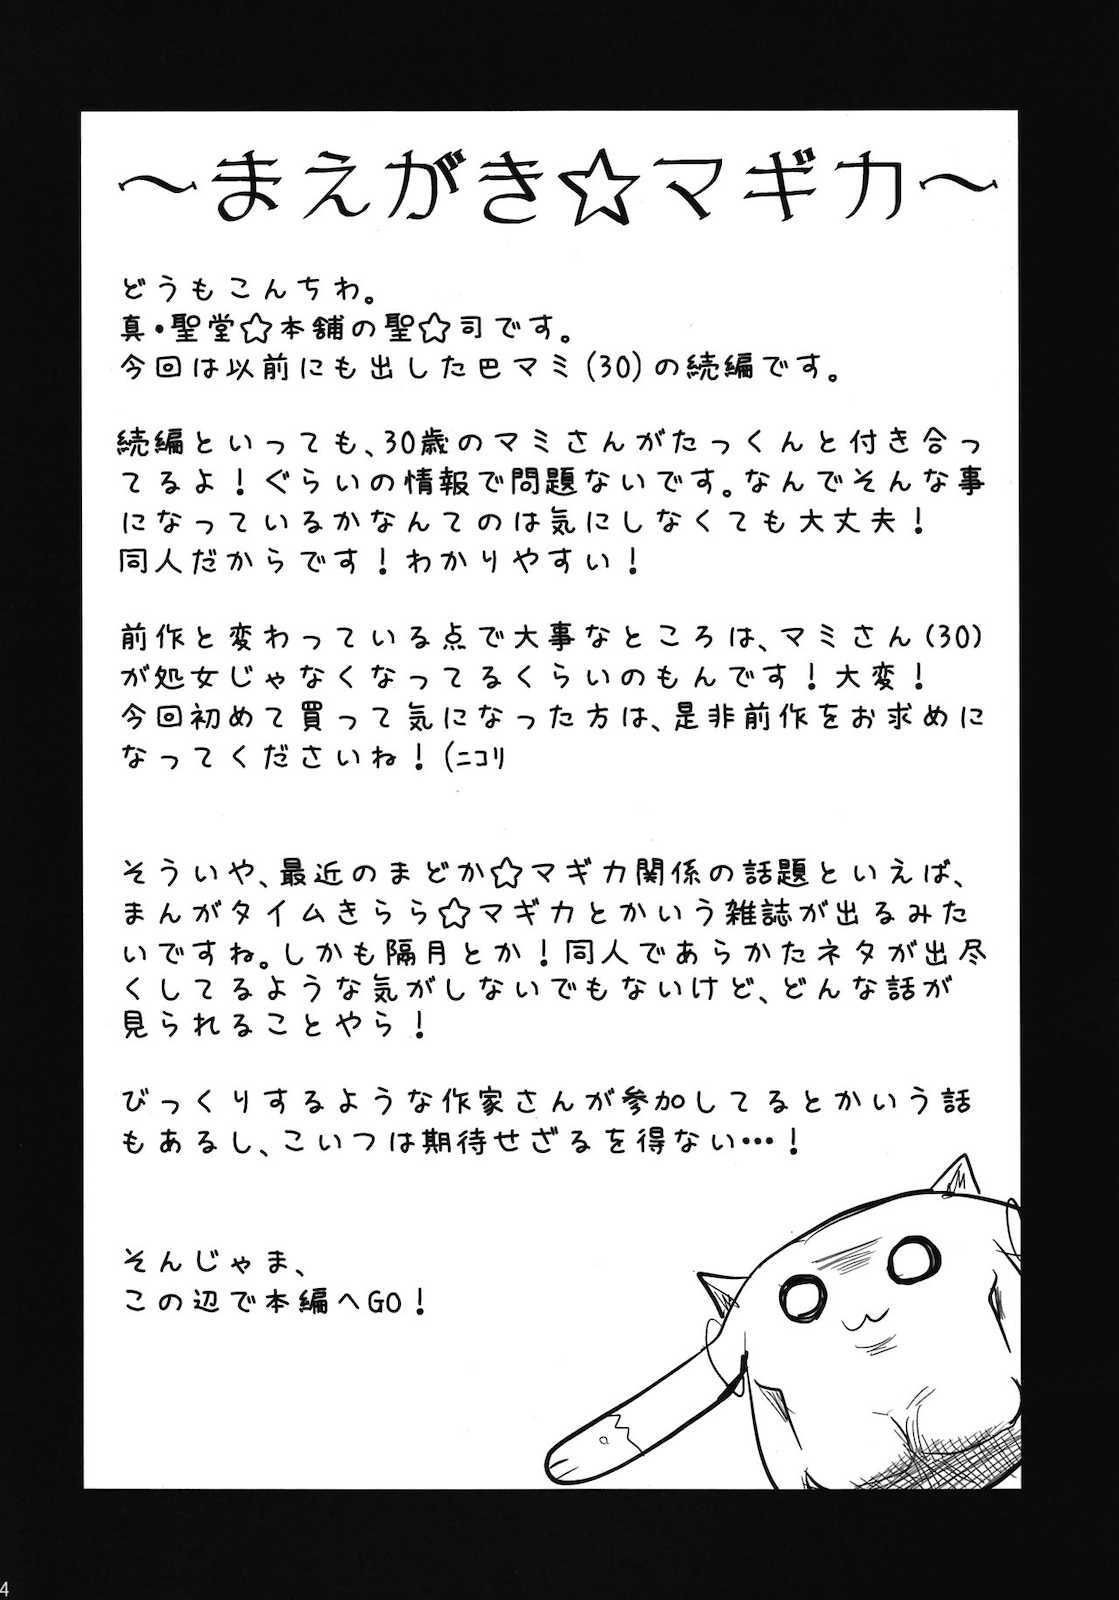 ～まえがき☆マギカ～
どうもこんちわ。
真・聖堂☆本舗の聖☆司です。
今回は以前にも出した巴マミ(30)の続編です。
続編といっても、30歳のマミさんがたっくんと付き合っ
てるよ！ぐらいの情報で問題ないです。なんでそんな事
になっているかなんてのは気にしなくても大丈夫！
同人だからです！わかりやすい！
前作と変わっている点で大事なところは、マミさん(30)
が処女じゃなくなってるくらいのもんです！大変！
今回初めて買って気になった方は、是非前作をお求めに
なってくださいね！(ﾆｺﾘ
そういや、最近のまどか☆マギカ関係の話題といえば、
まんがタイムきらら☆マギカとかいう雑誌が出るみた
いですね。しかも隔月とか！同人であらかたネタが出尽
くしてるような気がしないでもないけど、どんな話が
見られることやら！
びっくりするような作家さんが参加してるとかいう話
もあるし、こいつは期待せざるを得ない…！
そんじゃま、
この辺で本編へGO！
4